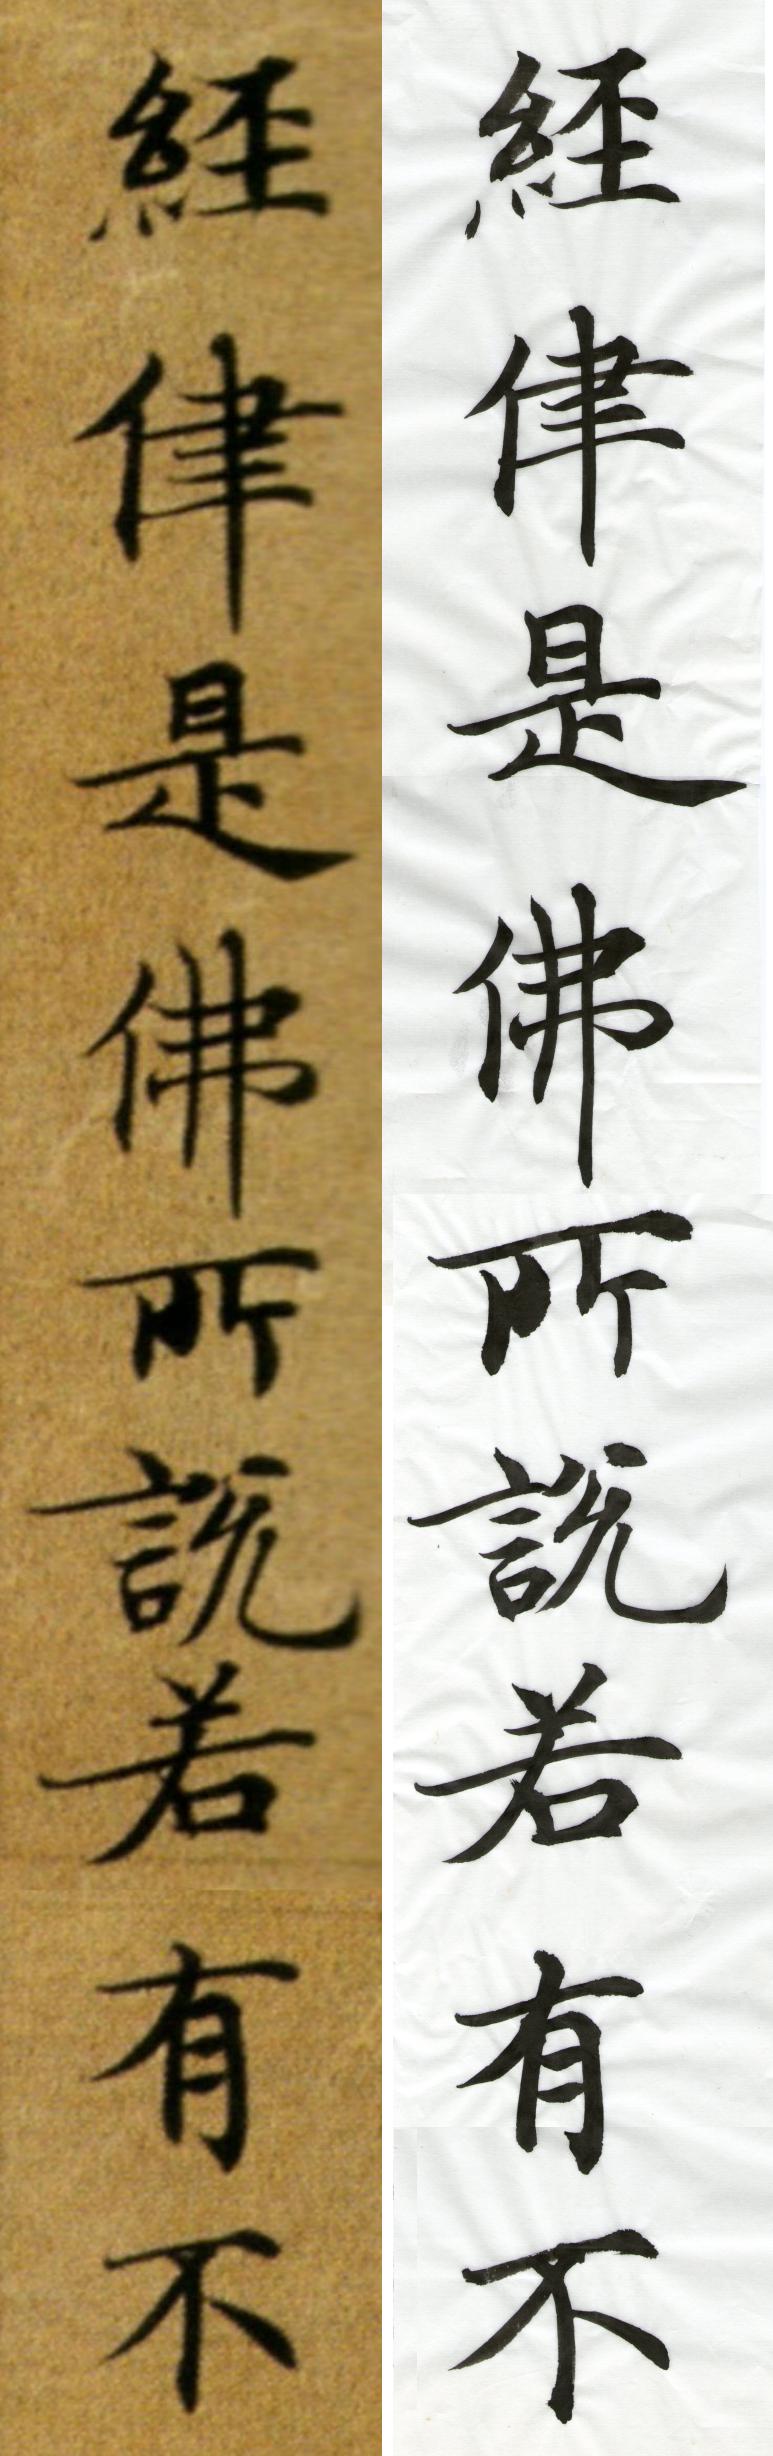 經律是佛所說若有不
經律是佛所說若有不